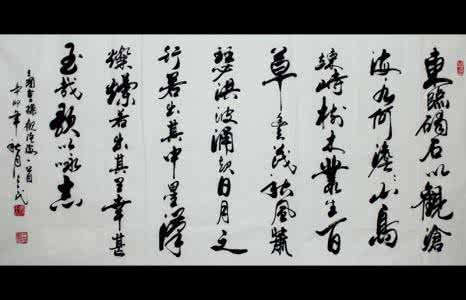 東臨碣石以觀滄
海水何澹澹山島
竦峙樹木叢生百
草豐茂秋風蕭
瑟洪波涌起日月之
行若出其中星漢
燦爛若出其里幸甚
至哉歌以詠志
三國曹操觀滄海一首
辛卯年秋月